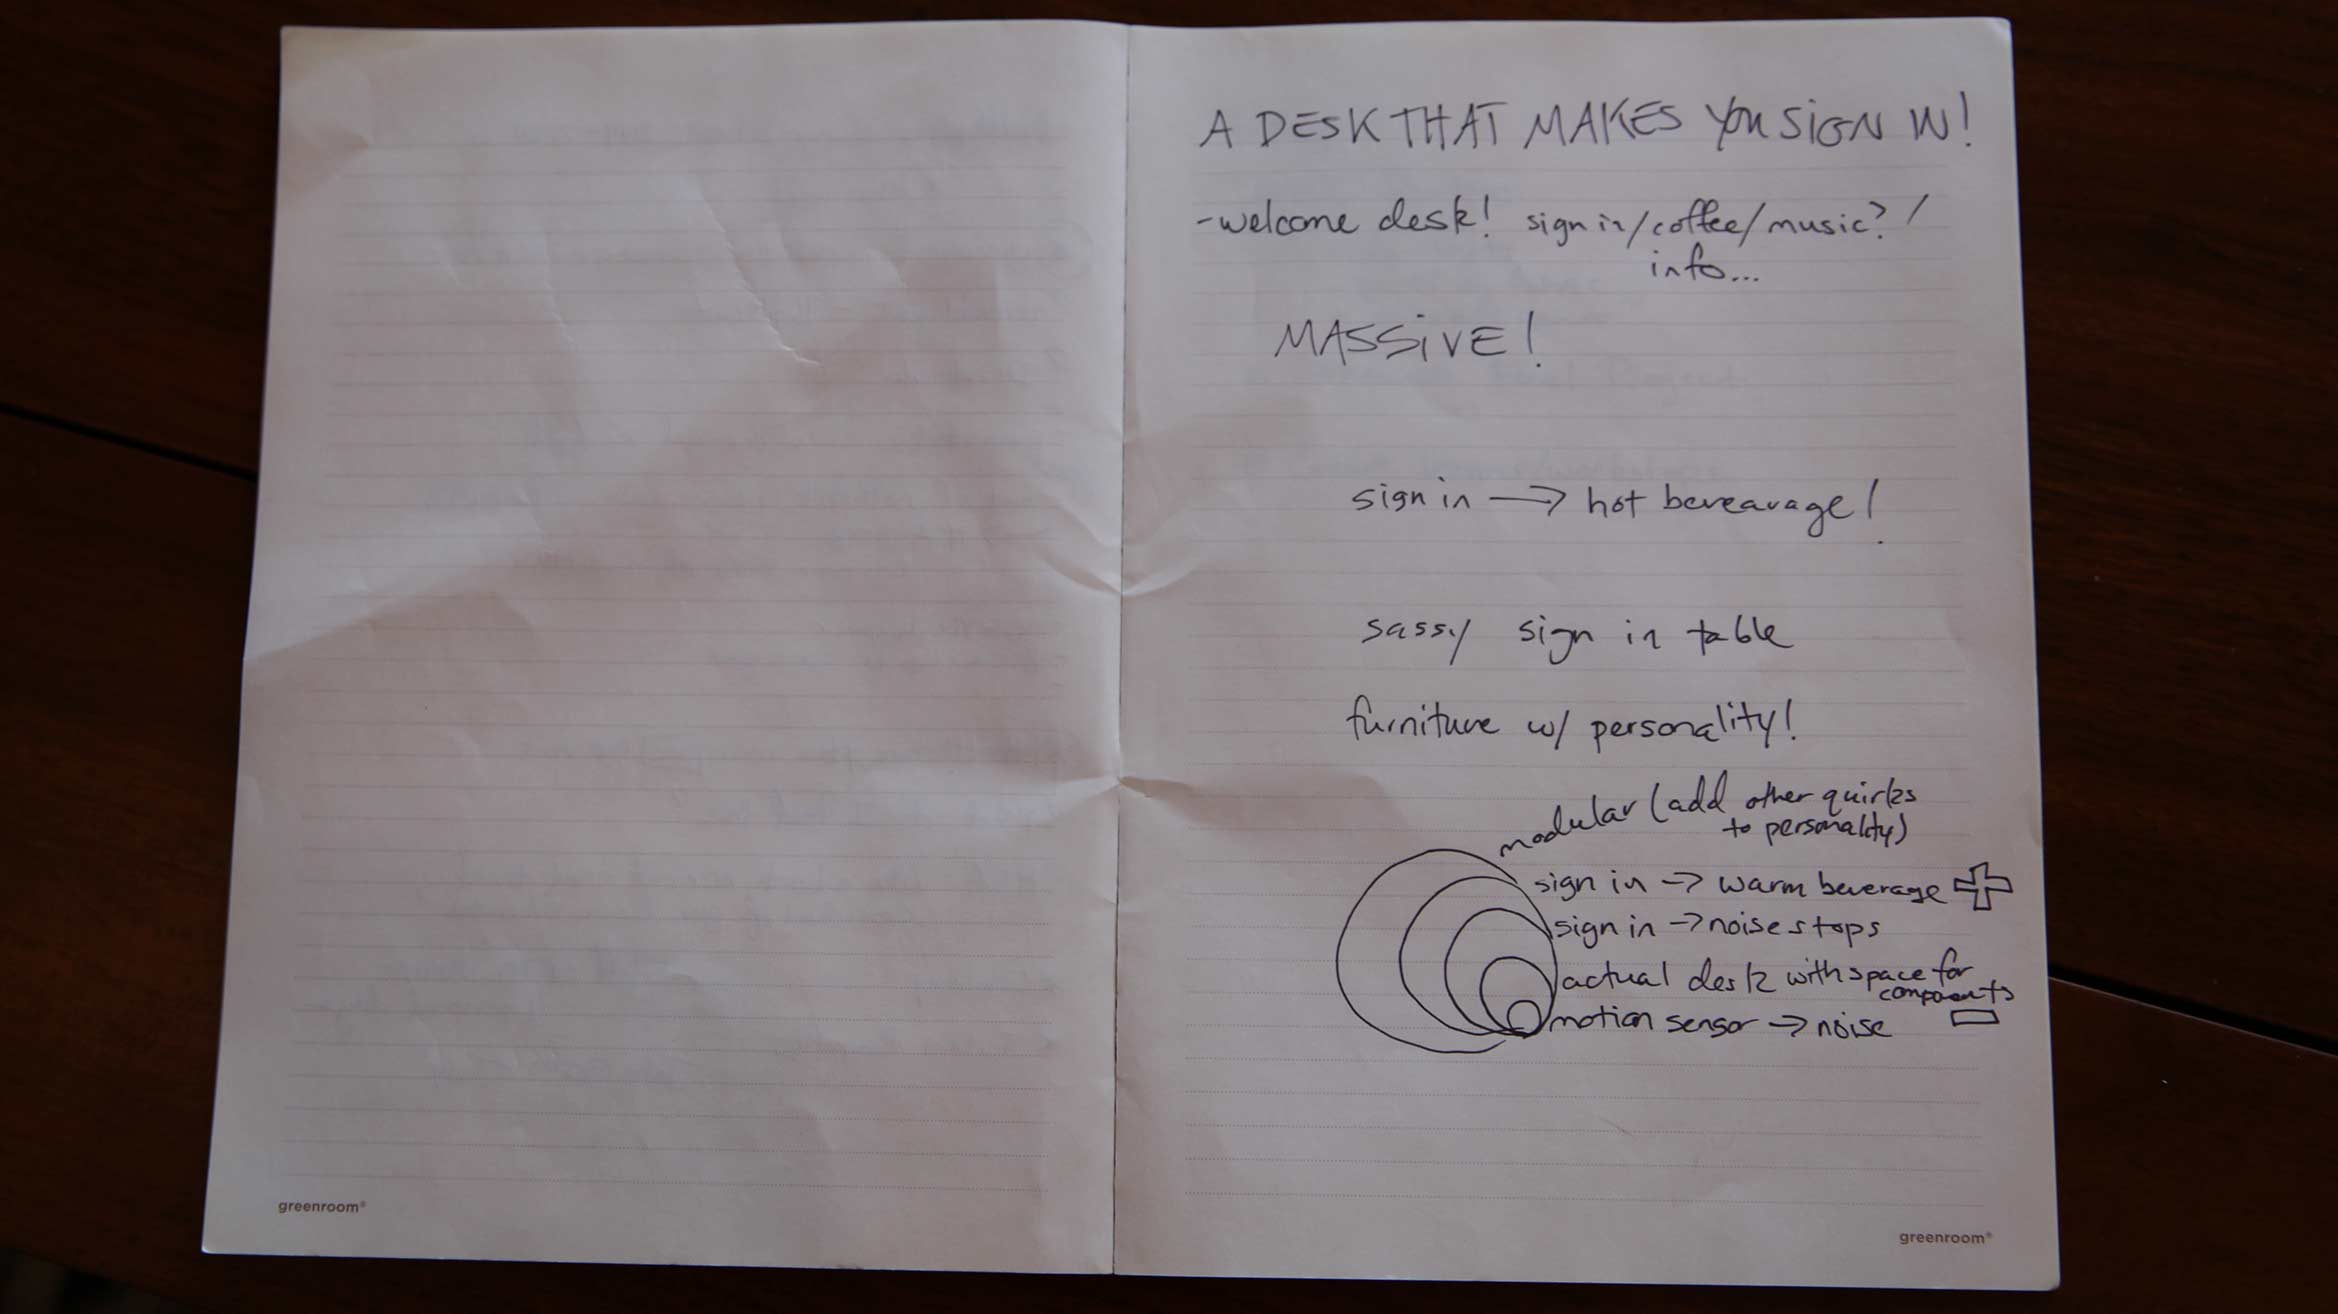 A DESK THAT MAKES YOU SIGN IN!
-welcome desk! sign in/coffee/music?/
info...
MASSIVE!
sign in → hot bevearage!
sassy sign in table
furniture w/ personality!
modular (add other quirks
to personality)
sign in → warm beverage +
sign in → noise stops
actual desk with space for
components
motion sensor → noise -
greenroom®
greenroom®